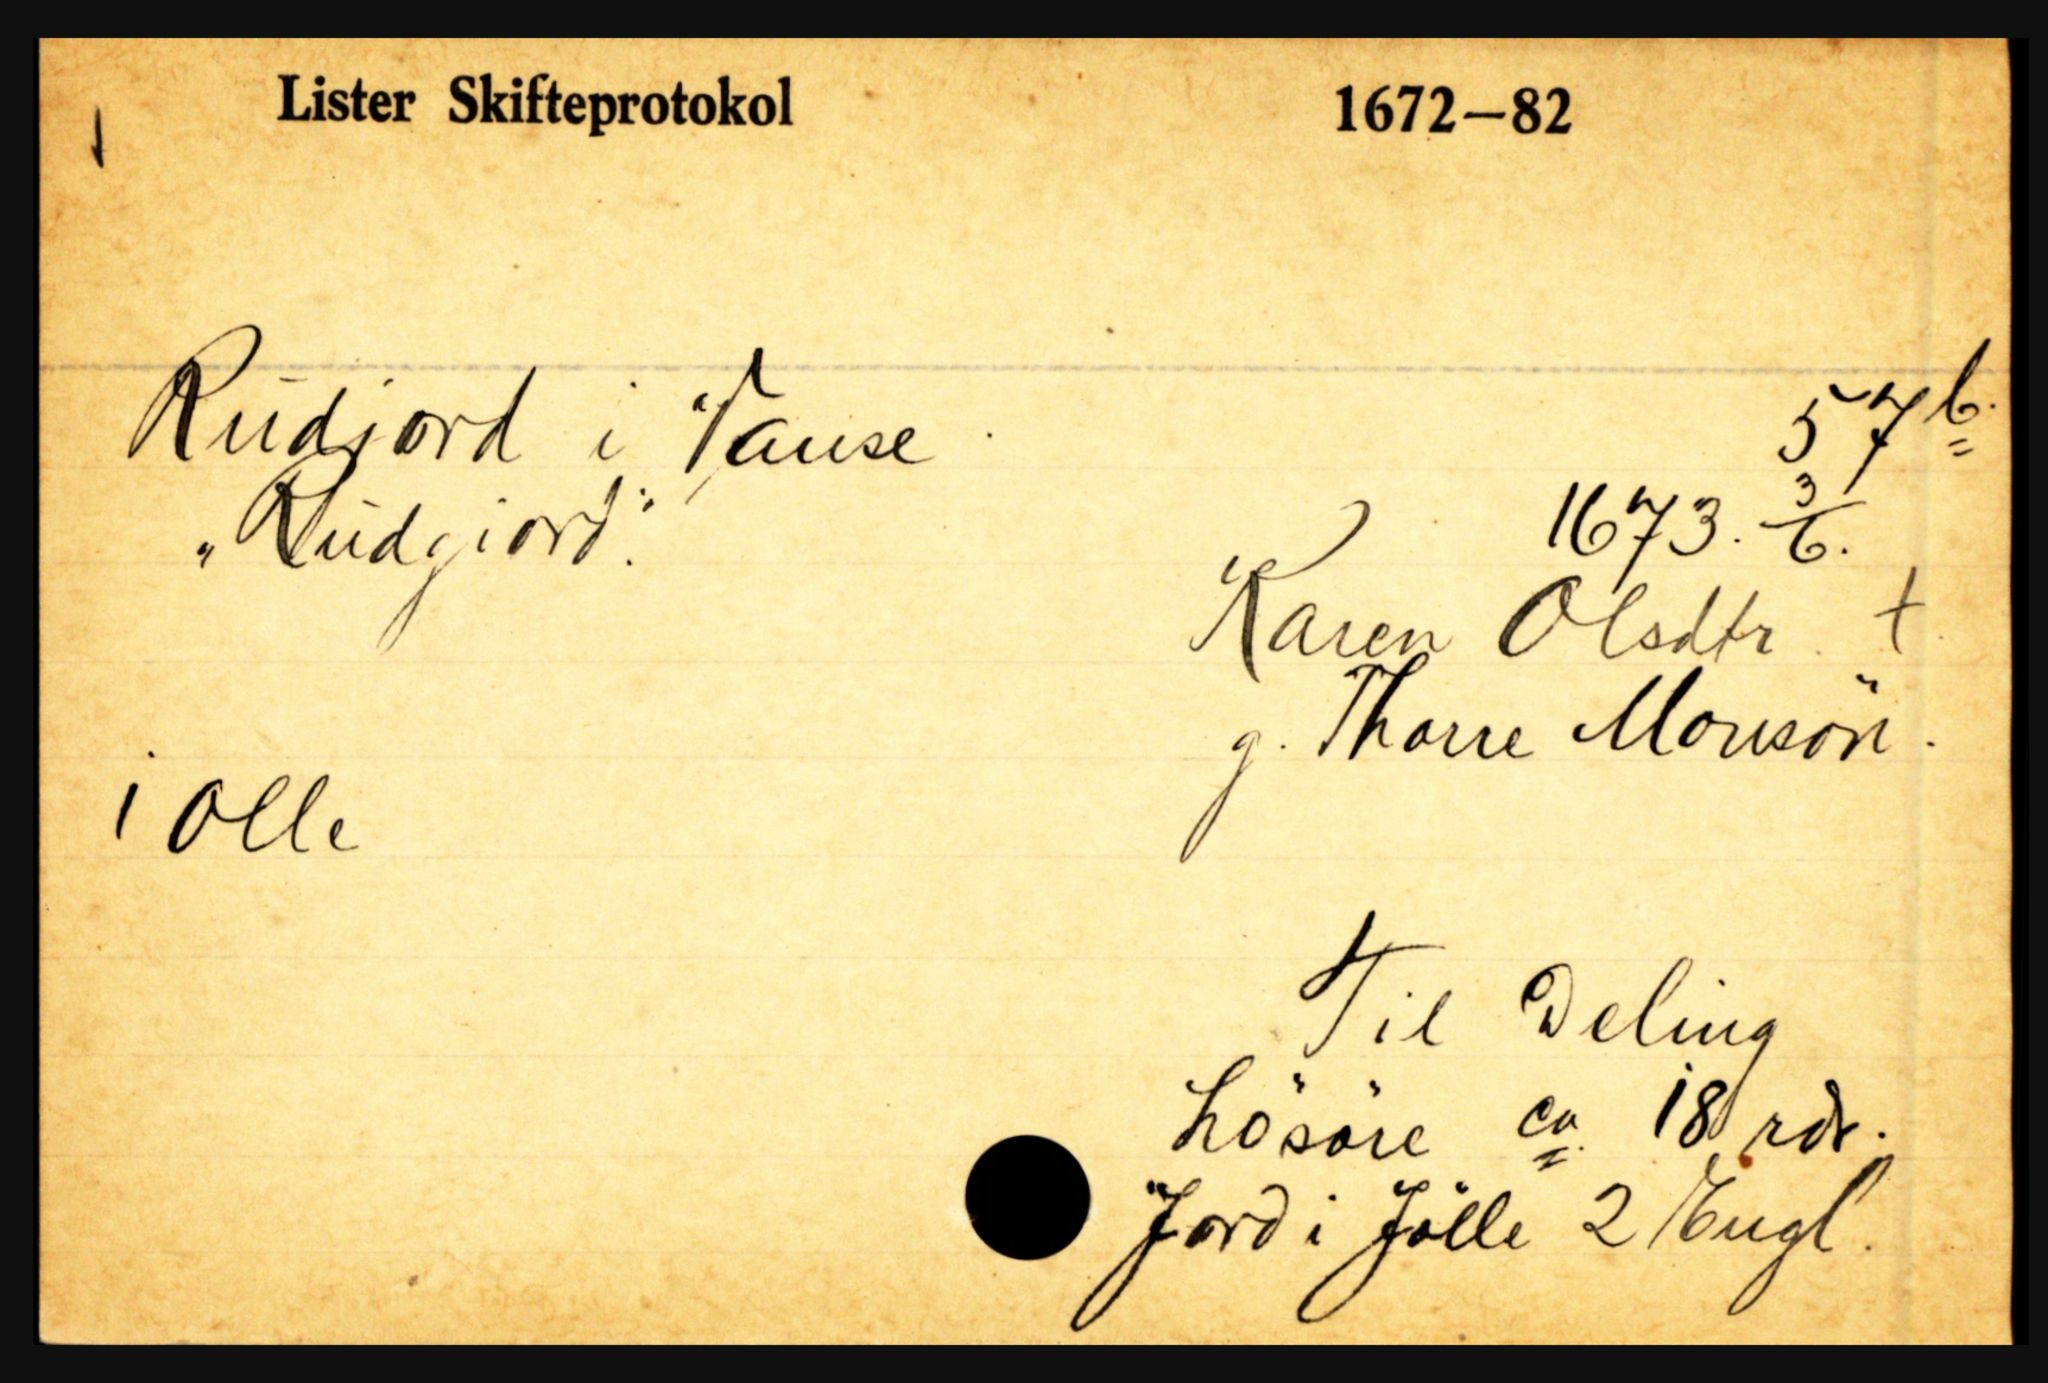 Lister Skifteprotokol 1672–82
Rudjord i Vanse.
57 b.
„Rudgiord".
1673. 3/6.
Karen Olsdtr †
g. Thorre Monsön.
1 Olle
Til Deling
Lösöre ca. 18 rdr.
Jord i Jölle 2 Eugl.